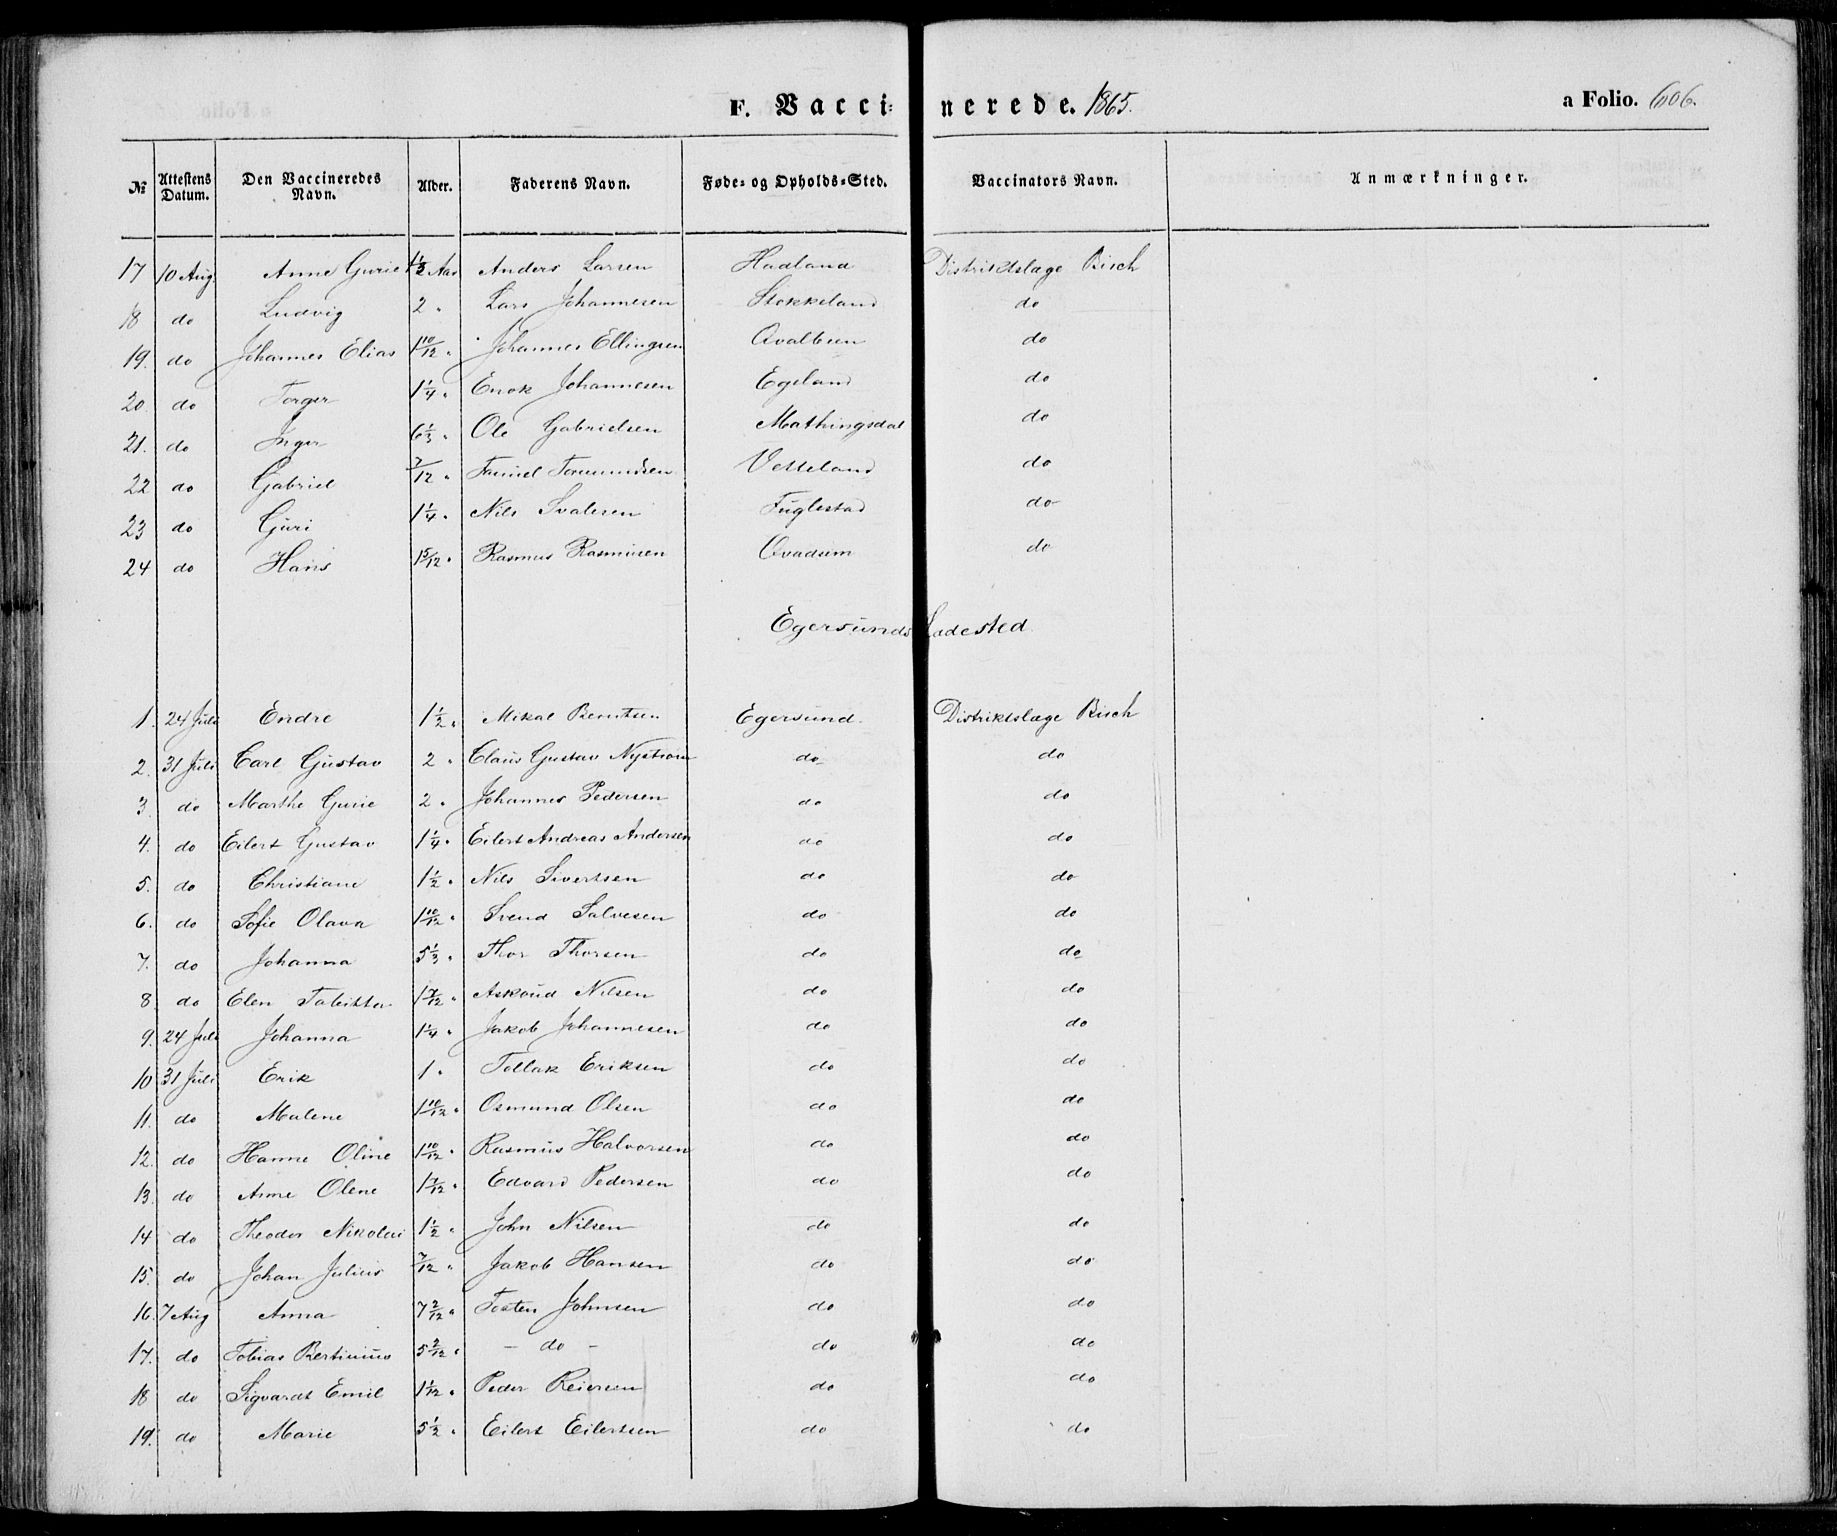 F. Vaccinerede. 1865. a Folio. 606.
№ Attestens Datum. Den Vaccineredes Navn. Alder. Faderens Navn. Føde- og Opholds-Sted. Vaccinators Navn. Anmærkninger.
17 10 Aug. Anne Gurie 1½ Aar Anders Larsen Hadland Distriktslæge Bisch
18 do Ludvig 2 " Lars Johannesen Stokkeland do
19. do Johannes Elias 1 10/12 " Johannes Ellingsen Qvalbein do
20. do Torger 1¼ " Enok Johannesen Egeland do
21. do Inger 6⅓ " Ole Gabrielsen Mathingsdal do
22 do Gabriel 7/12 " Tormundsen Vetteland do
23 do Guri 1¼ " Nils Svalesen Fuglestad do
24 do Hans 15/12 " Rasmus Rasmusen Qvadsem do
Egersunds Ladested
1. 24 Juli Endre 1½ " Mikal Berntsen Egersund Distriktslæge Bisch
2. 31 Juli Carl Gustav 2 " Claus Gustav Nystrøm do do
3 do Marthe Gurie 2 " Johannes Pedersen do do
4. do Eilert Gustav 1¼ " Eilert Andreas Andersen do do
5. do Christiane 1½ " Nils Sivertsen do do
6. do Sofie Olava 1 10/12 " Svend Salvesen do do
7. do Johanna 5⅓ " Thor Thorsen do do
8 do Elen Tabitha 1 7/12 " Askoud Nilsen do do
9. 24 Juli Johanna 1¼ " Jakob Johannesen do do
10 31 Juli Erik 1 " Tollak Eriksen do do
11. do Malene 1 10/12 " Osmund Olsen do do
12. do Hanne Oline 1 10/12 " Rasmus Halvorsen do do
13. do Anne Olene 1 7/12 " Edvard Pedersen do do
14 do Theodor Nikolai 1½ " John Nilsen do do
15. do Johan Julius 7/12 " Jakob Hansen do do
16. 7 Aug Anna 7 2/12 " Tosten Johnsen do do
17. do Tobias Bertinius 5 2/12 " - do - do do
18 do Sigvardt Emil 1 1/12 " Peder Reiersen do do
19. do Marie 5½ " Eilert Eilertsen do do